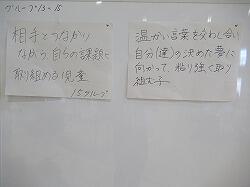 グループ13〜15
相手とつながり
ながら 自らの課題に
取り組める児童
15グループ
温かい言葉を交わし合い
自分(達)の決めた夢に
向かって、粘り強く取り
組む子